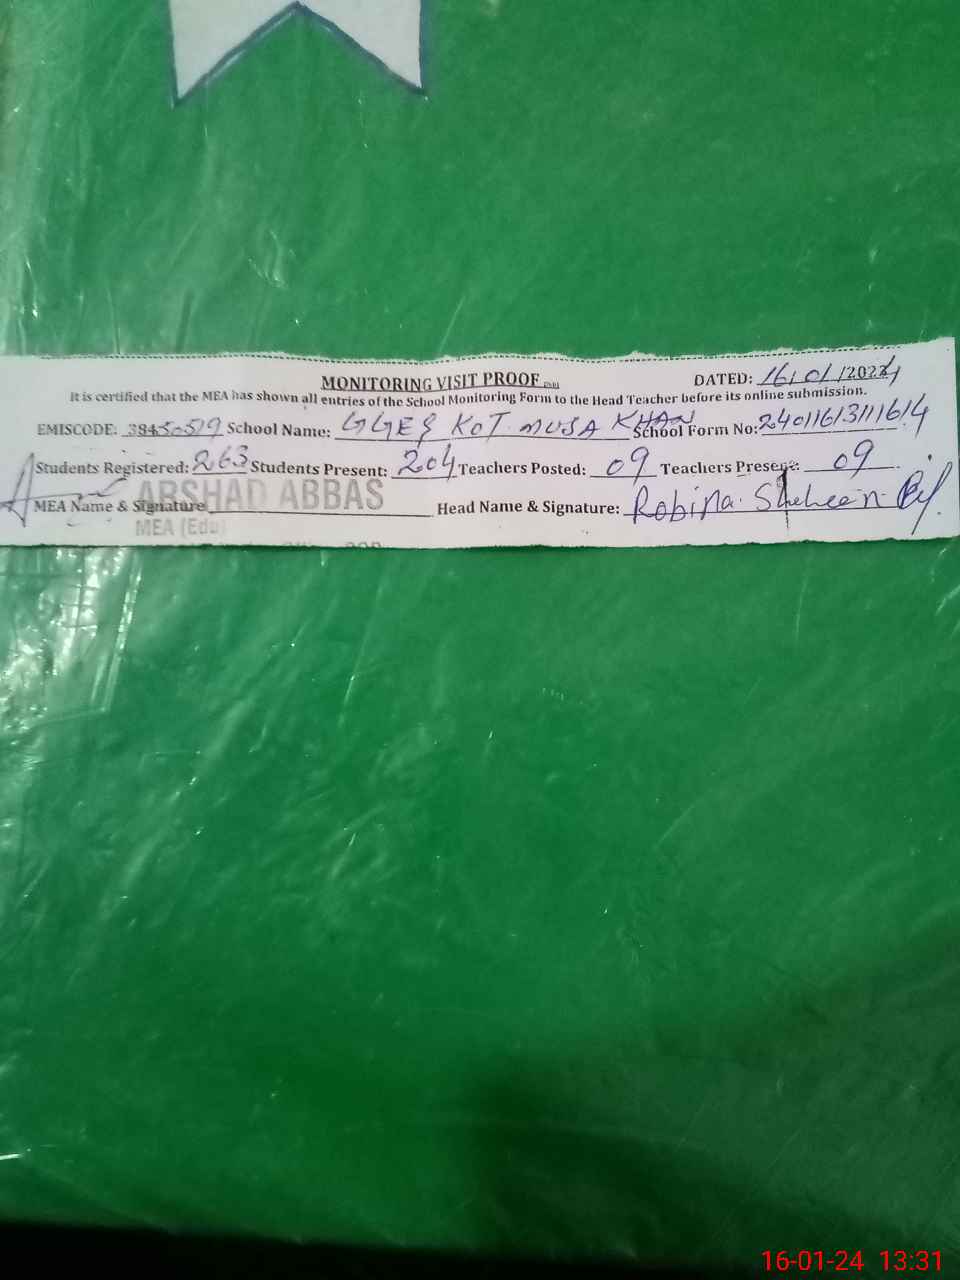 MONITORING VISIT PROOF
DATED: 16/01/2024
It is certified that the MEA has shown all entries of the School Monitoring Form to the Head Teacher before its online submission.
EMISCODE: 38450519 School Name: GGES KOT MUSA KHAN School Form No: 24011613111614
Students Registered: 263 Students Present: 204 Teachers Posted: 09 Teachers Present: 09
ARSHAD ABBAS
MEA Name & Signature Head Name & Signature: Robina Shaheen
MEA (Edu)
16-01-24 13:31